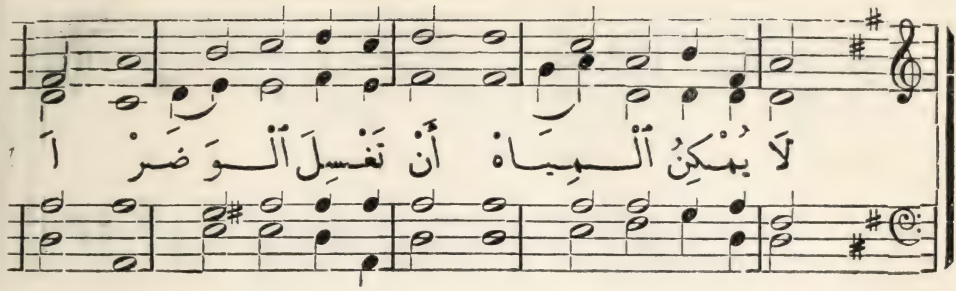 لَا يُمْكِنُ ٱلْـمِيَـاهَ أَنْ تَغْسِلَ ٱلْـوَ ضَـرْ آ